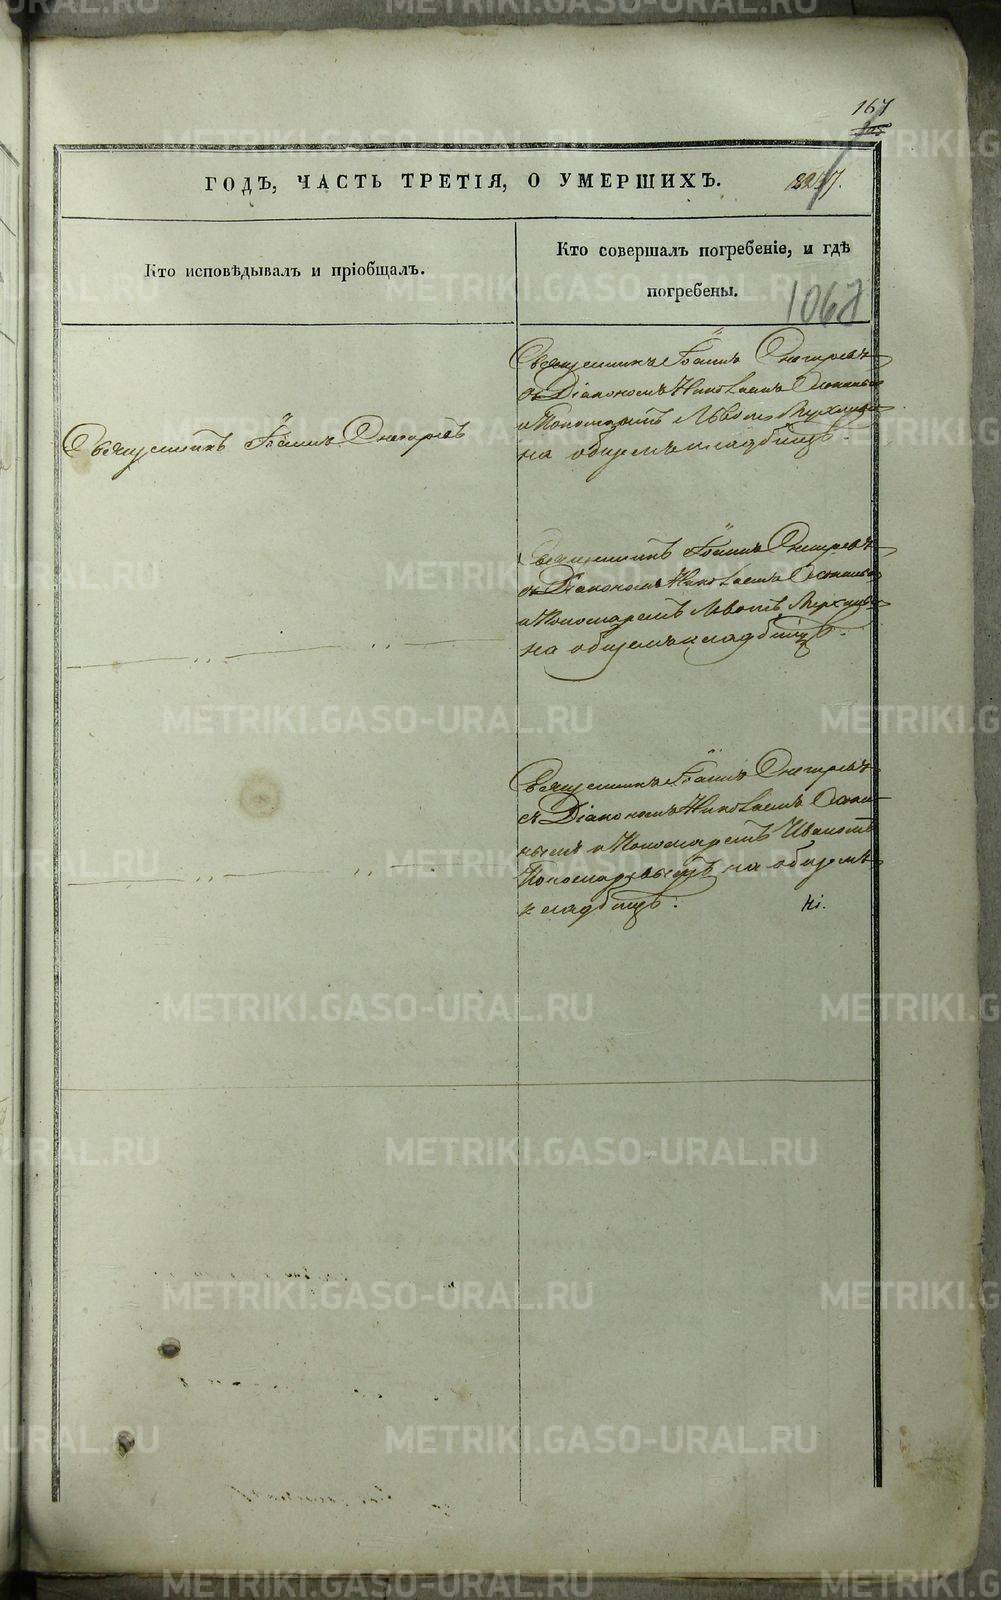 167
ГОДЪ, ЧАСТЬ ТРЕТІЯ, О УМЕРШИХЪ.
Кто исповѣдывалъ и пріобщалъ.
Кто совершалъ погребеніе, и гдѣ
погребены.
1062
Священникъ Іоаннъ Снегиревъ
Священникъ Іоаннъ Снегиревъ
съ Діакономъ Николаемъ
и Пономаремъ Львомъ
на общемъ кладбищѣ.
Священникъ Іоаннъ Снегиревъ
съ Діакономъ Николаемъ
и Пономаремъ Львомъ
на общемъ кладбищѣ.
Священникъ Іоаннъ Снегиревъ
съ Діакономъ Николаемъ
и Пономаремъ Иваномъ
Пономаревымъ на общемъ
кладбищѣ:
METRIKI.GASO-URAL.RU